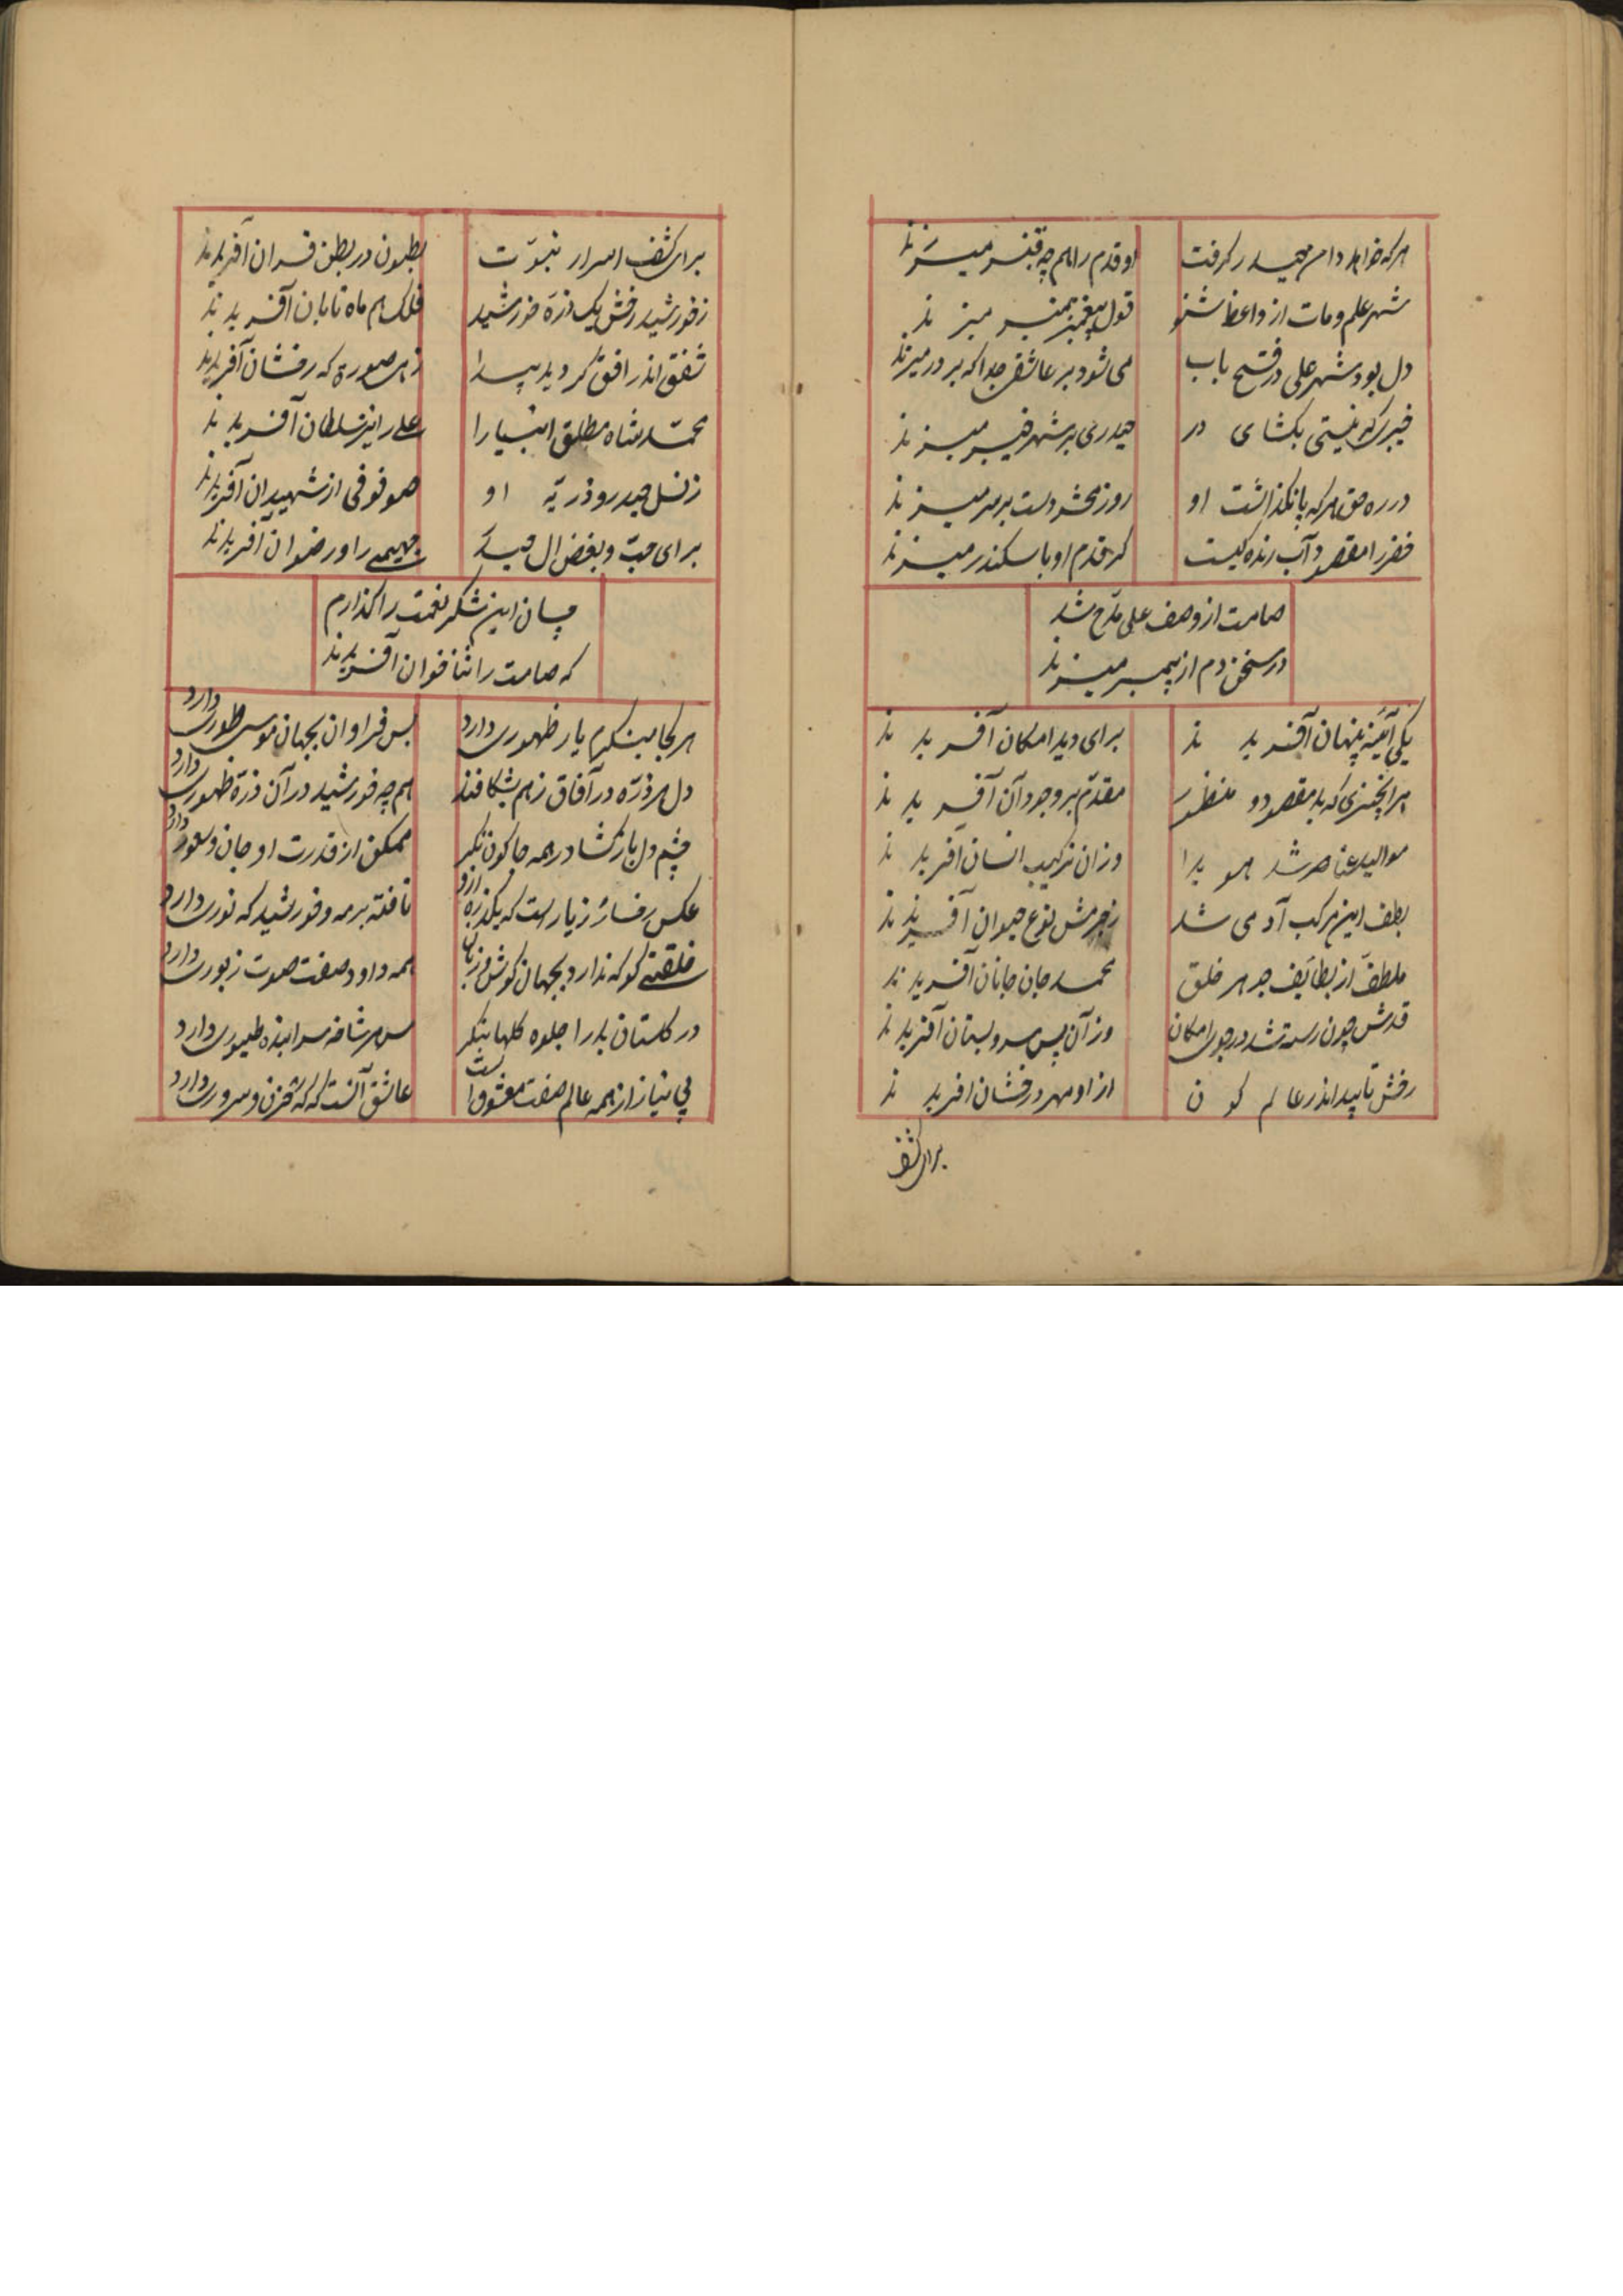 هر که خواهد دامن حیدر گرفت او قدم را هم چه قنبر میزند
شهر علم و مات از واعظ شنو قول پیغمبر بمنبر میزند
دل بود شهر علی در فتح باب می شود بر عاشق جدا که بر در میزند
خیبر که نیستی بکشای در حیدری بر شهر خیبر میزند
در ره حق هر که پا نگذاشت او روز محشر دست بر سر میزند
خضر را مقصود آب زنده کیست کر قدم او با سکندر میزند
صامت از وصف علی مدّاح شد
در سخن دم از پیمبر میزند
یکی آئینه پنهان آفریدند برای دید امکان آفریدند
هر انچیزی که بد مقصود و منظور مقدّم بر وجود آن آفریدند
موالید عناصر شد هویدا وزان ترکیب انسان آفریدند
بطف این مرکب آدمی شد زجرمش نوع حیوان آفریدند
ملطف از لطایف جوهر خلق محمد جان جانان آفریدند
قدش چون رسته شد در جوی امکان وزآن پس سرو بستان آفریدند
رخش تابید اندر عالم کون از او مهر درخشان افریدند
برای کشف
برای کشف اسرار نبوّت بطون در بطن قران آفریدند
زخورشید رخش یک ذرّه خورشید فلک هم ماه تابان آفریدند
شفق اندر افق گردید پیدا زهر صورة که رخشان آفریدند
محمّد شاه مطلق انبیا را علی را نیز سلطان آفریدند
زنسل حیدر و ذریّه او صفوفی از شهیدان آفریدند
برای حبّ و بغض ال حیدر جهیمی را و رضوان آفریدند
چسان این شکر نعمت را گذارم
که صامت را ثنا خوان آفریدند
هر کجا مینکرم یار ظهوری دارد بس فراوان بجهان موسی طوری دارد
دل هر ذرّه در آفاق زهم بشکافند هم چه خورشید در آن ذرّة ظهوری دارد
چشم دل باز گشا در همه جا کون نگر ممکن از قدرت او جان و شعوری دارد
عکس رخسار زیار است که یکذره ازو تافته بر مه و خورشید که نوری دارد
خلقتی کو که ندارد بجهان گوش و زبان همه داود صفت صوت زبوری دارد
در گلستان بدر آ جلوه گلها بنگر سر هر شاخه سراینده طیوری دارد
بی نیاز از همه عالم صفت معشوق است عاشق آنست که که حزن و سروری دارد